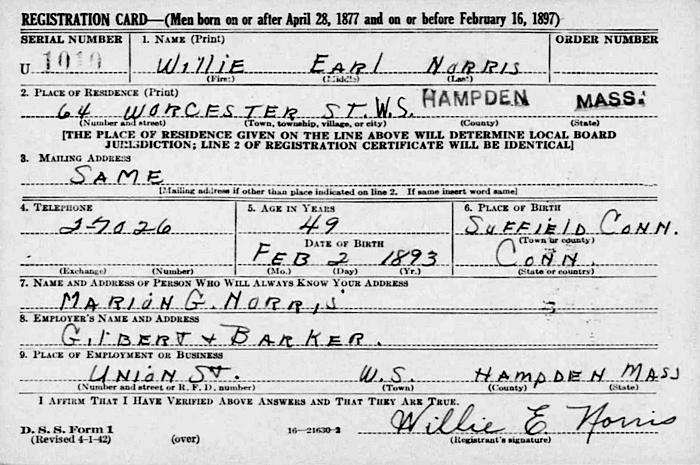 REGISTRATION CARD—(Men born on or after April 28, 1877 and on or before February 16, 1897)
SERIAL NUMBER 1. NAME (Print) ORDER NUMBER
U 1010 WILLIE EARL NORRIS
(First) (Middle) (Last)
2. PLACE OF RESIDENCE (Print)
64 WORCESTER ST. W.S. HAMPDEN MASS.
(Number and street) (Town, township, village, or city) (County) (State)
[THE PLACE OF RESIDENCE GIVEN ON THE LINE ABOVE WILL DETERMINE LOCAL BOARD
JURISDICTION; LINE 2 OF REGISTRATION CERTIFICATE WILL BE IDENTICAL]
3. MAILING ADDRESS
SAME
[Mailing address if other than place indicated on line 2. If same insert word same]
4. TELEPHONE 5. AGE IN YEARS 6. PLACE OF BIRTH
2-7026 49 SUFFIELD CONN.
DATE OF BIRTH (Town or county)
FEB 2 1893 CONN.
(Exchange) (Number) (Mo.) (Day) (Yr.) (State or country)
7. NAME AND ADDRESS OF PERSON WHO WILL ALWAYS KNOW YOUR ADDRESS
MARION G. NORRIS
8. EMPLOYER'S NAME AND ADDRESS
GILBERT + BARKER.
9. PLACE OF EMPLOYMENT OR BUSINESS
UNION ST. W.S. HAMPDEN MASS
(Number and street or R. F. D. number) (Town) (County) (State)
I AFFIRM THAT I HAVE VERIFIED ABOVE ANSWERS AND THAT THEY ARE TRUE.
Willie E Norris
D. S. S. Form 1
(Revised 4-1-42) (over) 16—21630-2 (Registrant's signature)